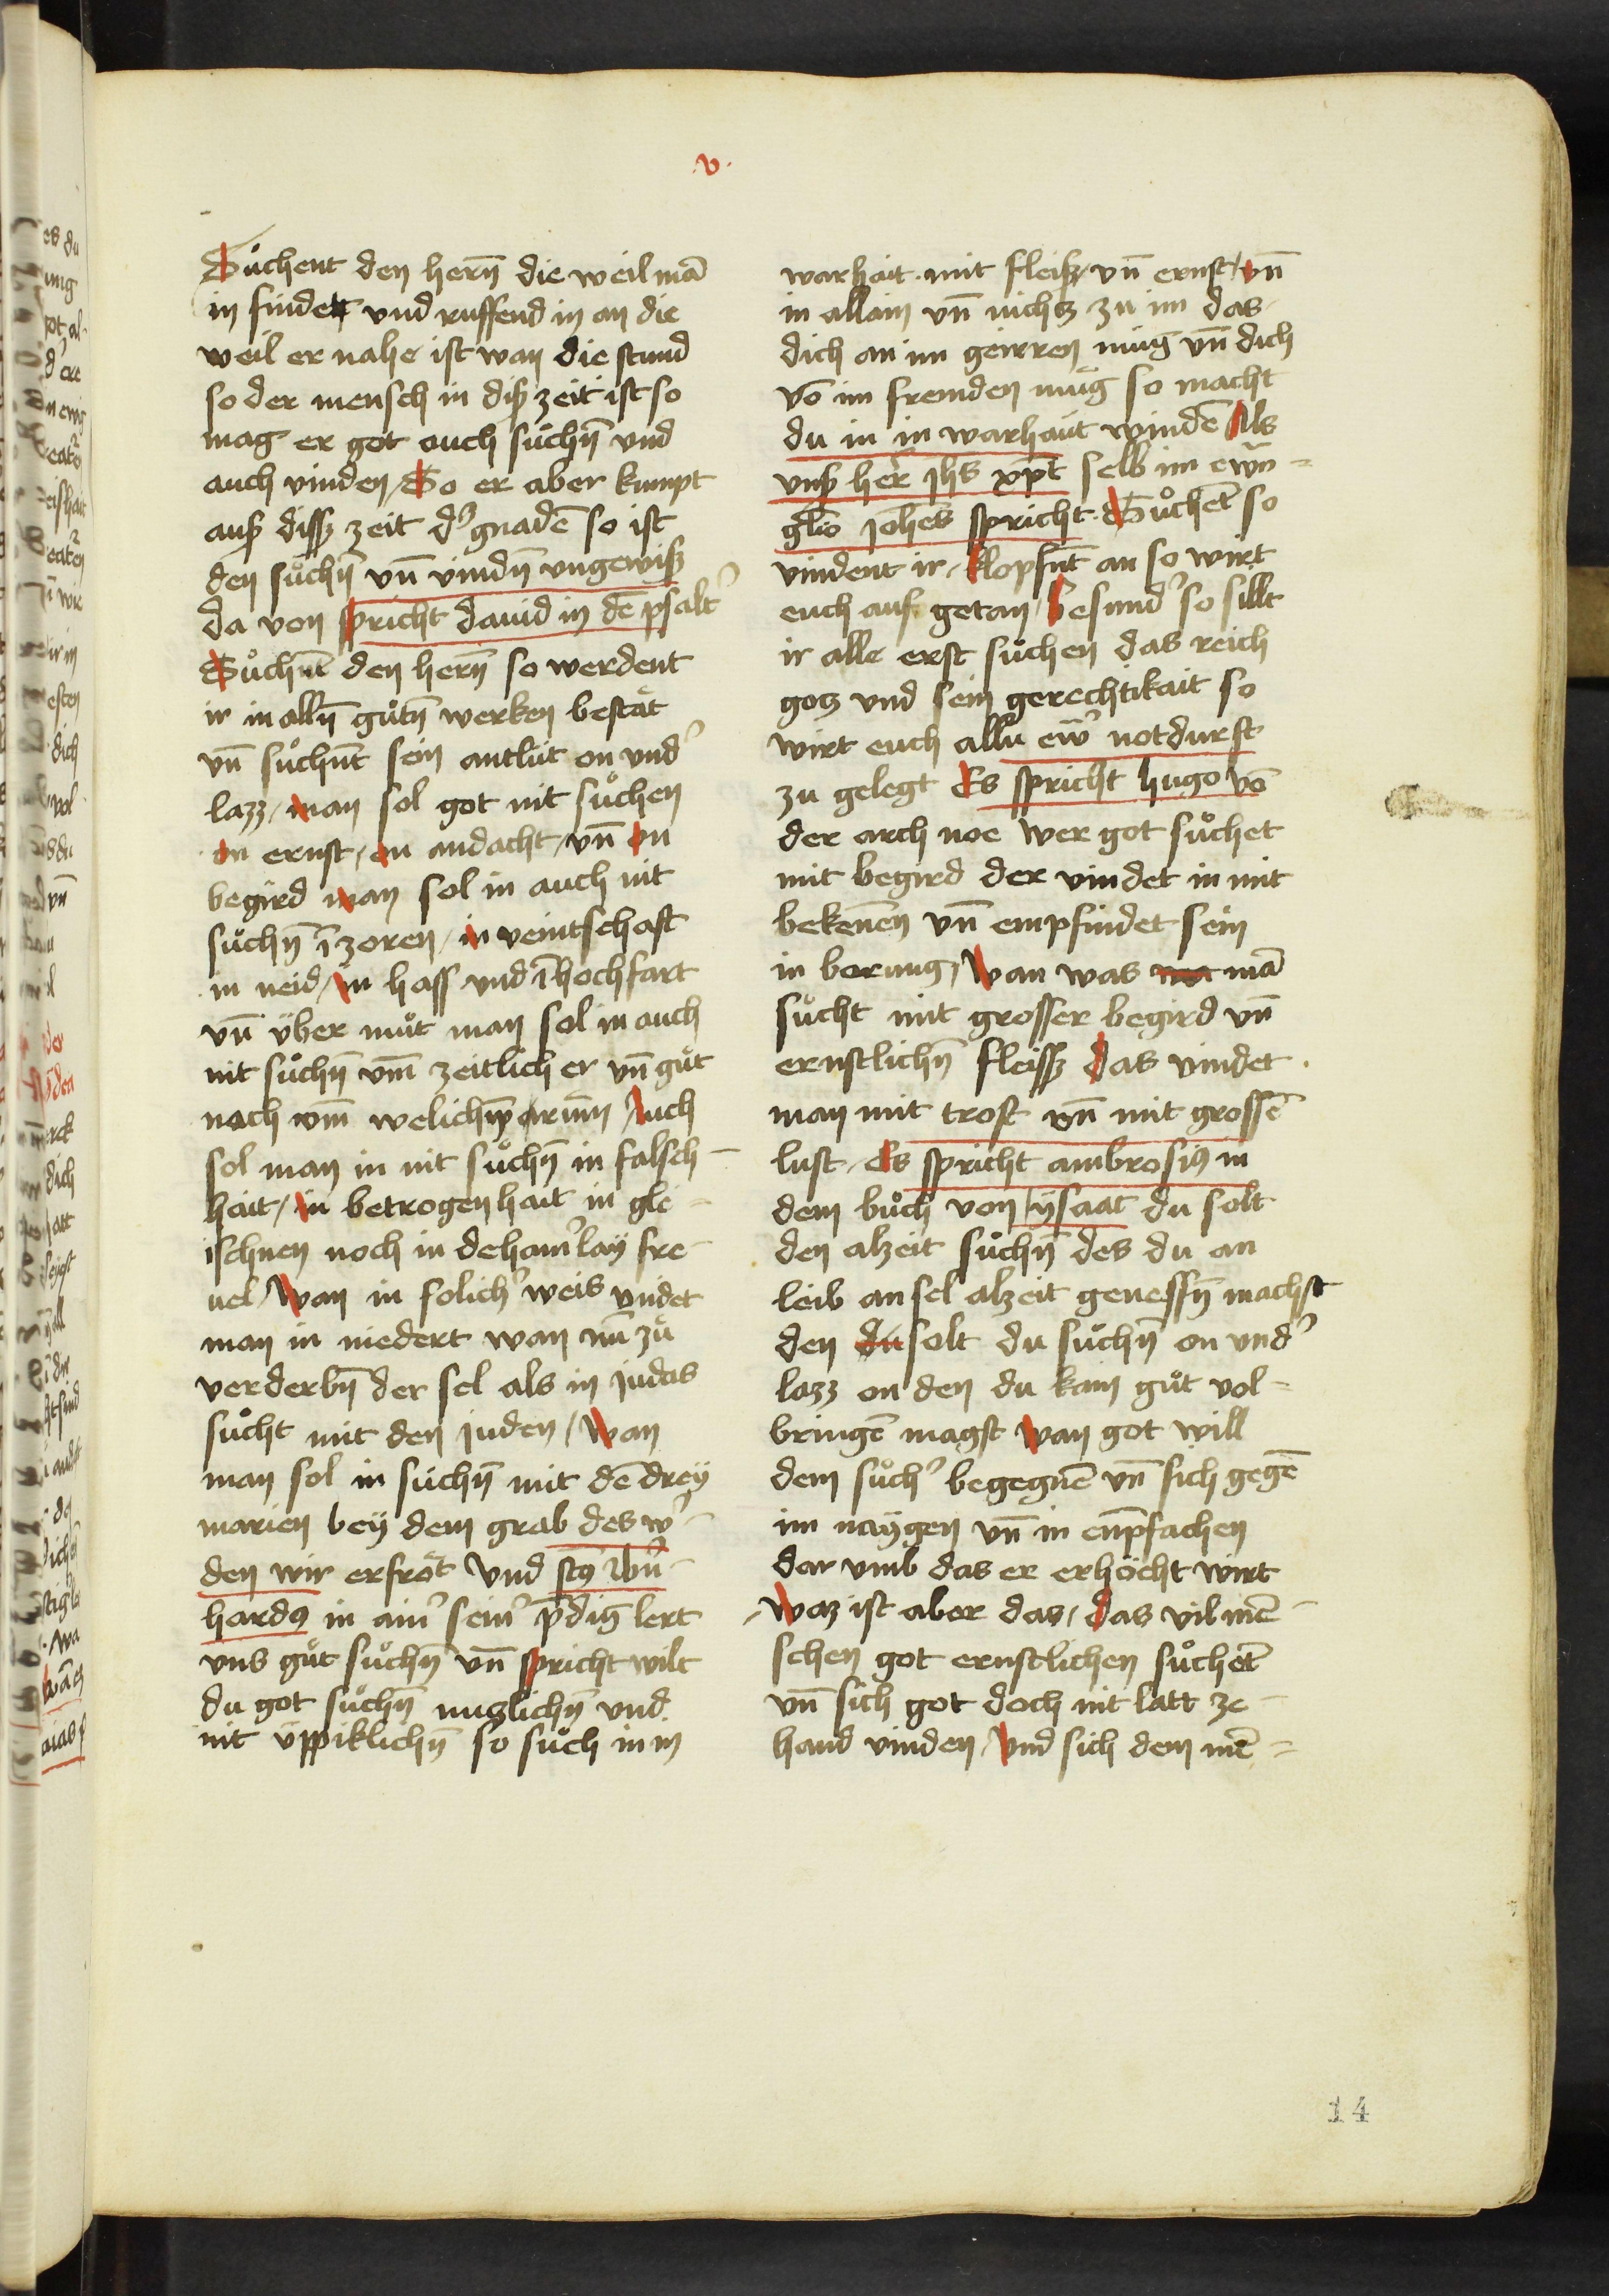 .v.
Sůchent den hern̄ die weil mā
in findet vnd ruffend in an die
weil er nahe ist wan die stund
so der mensch in diß zeit ist so
mag er got auch sůchn̄ vnd
auch vinden / So er aber kumpt
auß dißz zeit d' gnadē so ist
den sůchn̄ vn̄ vindn̄ vngewiß
da von spricht dauid in dē psalt'
Sůchnt den hern̄ so werdent
ir in alln̄ gůtn̄ werken bestät
vn̄ sůchnt sein antlüt on vnd'
lazz / man sol got nit sůchen
on ernst / on andacht / vn̄ on
begird man sol in auch nit
sůchn̄ ī zoren / in veintschaft
in neid / in hass vnd ī hochfart
vn̄ über můt man sol in auch
nit sůchn̄ vm̄ zeitlich er vn̄ gůt
noch vm̄ welichn̄ Auch
sol man in nit sůchn̄ in falsch-
hait / in betrogenhait in gle-
ischnen noch in dehain'lay fre-
uel / Wan in solich' weis vindet
man in niedert wan nū zů
verderbn̄ der sel als in judas
sůcht mit den juden / Wan
man sol in sůchn̄ mit dē drey
marien bey dem grab des w'-
den wir erfröt vnd
hardꝰ in ain' sein' p̄dig lert
vns gůt sůchn̄ vn̄ spricht wilt
du got sůchn̄ nuczlichn̄ vnd
nit üppiklichn̄ so sůch in in
warhait mit fleiß / vn̄ ernst / vn̄
in allain vn̄ nichcz zu im das
dich an im geirren müg vn̄ dich
vō im fremden müg so macht
du in in warhait vindē Als
vnß her̄ jhs xp̄t selb im ewn̄-
glio johēs spricht. Sůchēt so
vindent ir / klopfnt an so wirt
euch auf getan / besund' so sillt
ir alle erst sůchen das reich
gocz vnd sein gerechtikait so
wirt euch allu ew' notdurft
zu gelegt Es spricht hugo vō
der arch noe wer got sůchet
mit begird der vindet in mit
bekenen̄ vn̄ empfindet sein
in berung / Wan was mā
sůcht mit grosser begird vn̄
ernstlichn̄ fleissz das vindet
man mit trost vn̄ mit grossē
lust / Es spricht ambrosiꝰ in
dem bůch von ÿsaac du solt
den alzeit sůchn̄ des du an
leib an sel alzeit genessn̄ machst
den du solt du sůchn̄ on vnd'
lazz on den du kain gůt vol-
bringē magst wan got will
dem sůch' begegnē vn̄ sich gegē
im naÿgen vn̄ in enpfachen
dar vmb das er erhöcht wirt
Waz ist aber das / das vil mē-
schen got ernstlichen sůchēt
vn̄ sich got doch nit latt ze-
hand vinden / vnd sich dem mē-
14